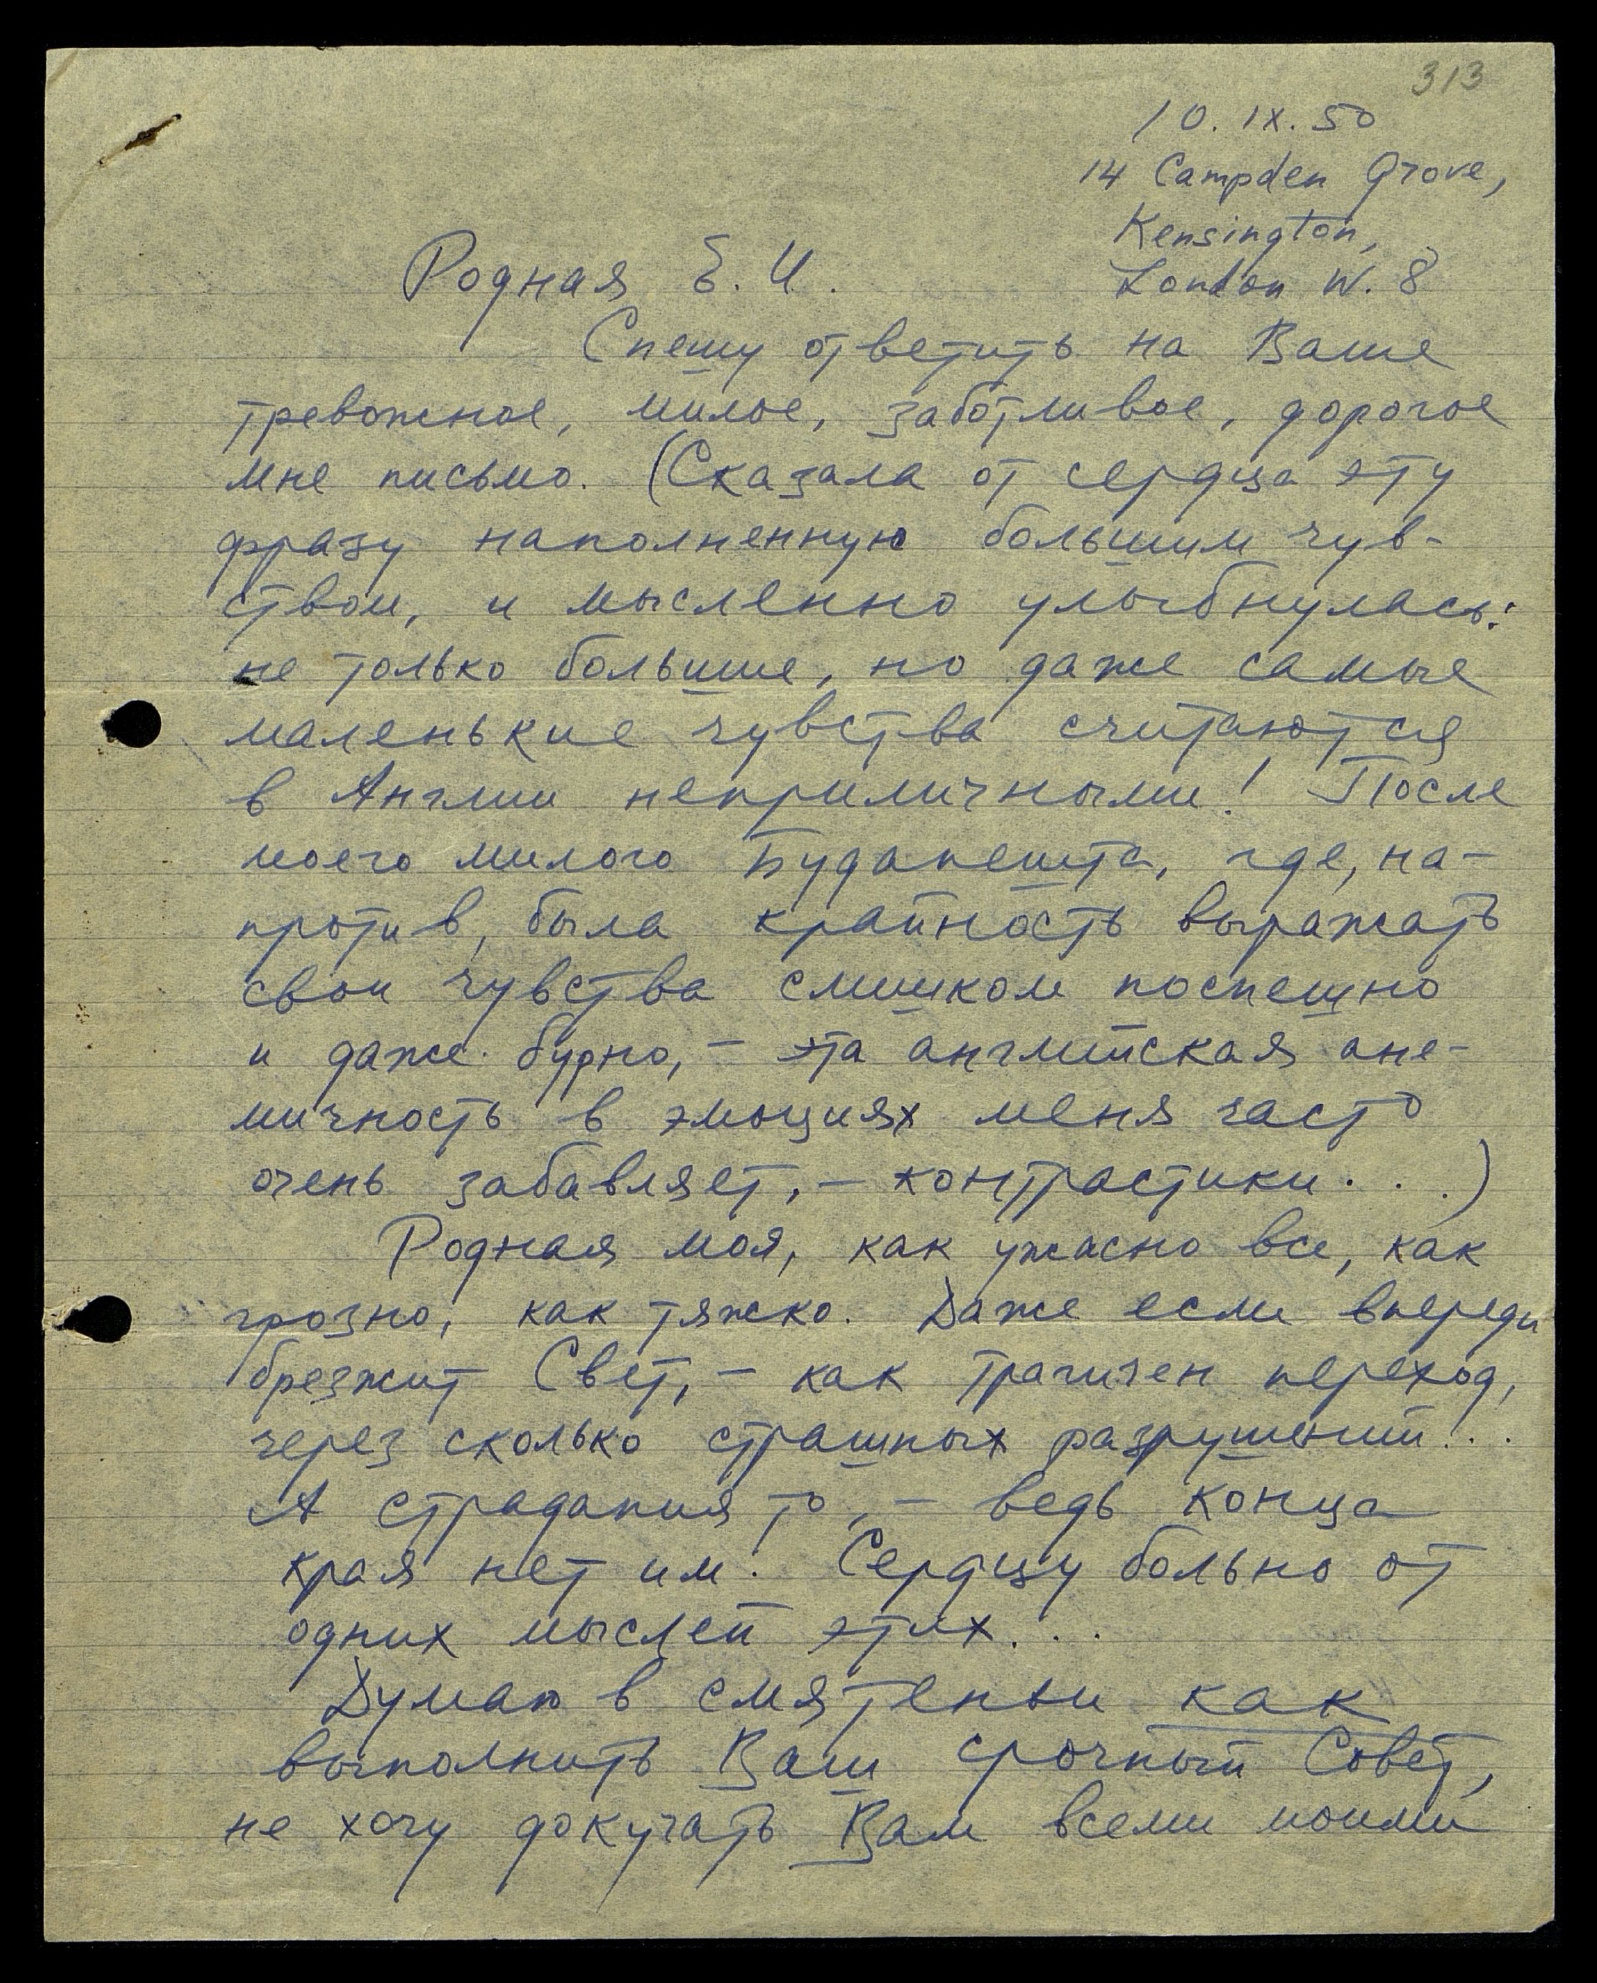 313
10. IX. 50
14 Campden Grove,
Kensington,
London W. 8
Родная Е. И.
Спешу ответить на Ваше
тревожное, милое, заботливое, дорогое
мне письмо. (Сказала от сердца эту
фразу наполненную большим чув-
ством, и мысленно улыбнулась:
не только большие, но даже самые
маленькие чувства считаются
в Англии неприличными! После
моего милого Будапешта, где, на-
против, была крайность выражать
свои чувства слишком поспешно
и даже бурно, – эта английская ане-
мичность в эмоциях меня часто
очень забавляет, – контрастики...)
Родная моя, как ужасно все, как
грозно, как тяжко. Даже если впереди
брезжит Свет, – как трагичен переход,
через сколько страшных разрушений!..
А страдания то, – ведь конца
края нет им. Сердцу больно от
одних мыслей этих...
Думаю в смятеньи как
выполнить Ваш срочный Совет,
не хочу докучать Вам всеми моими